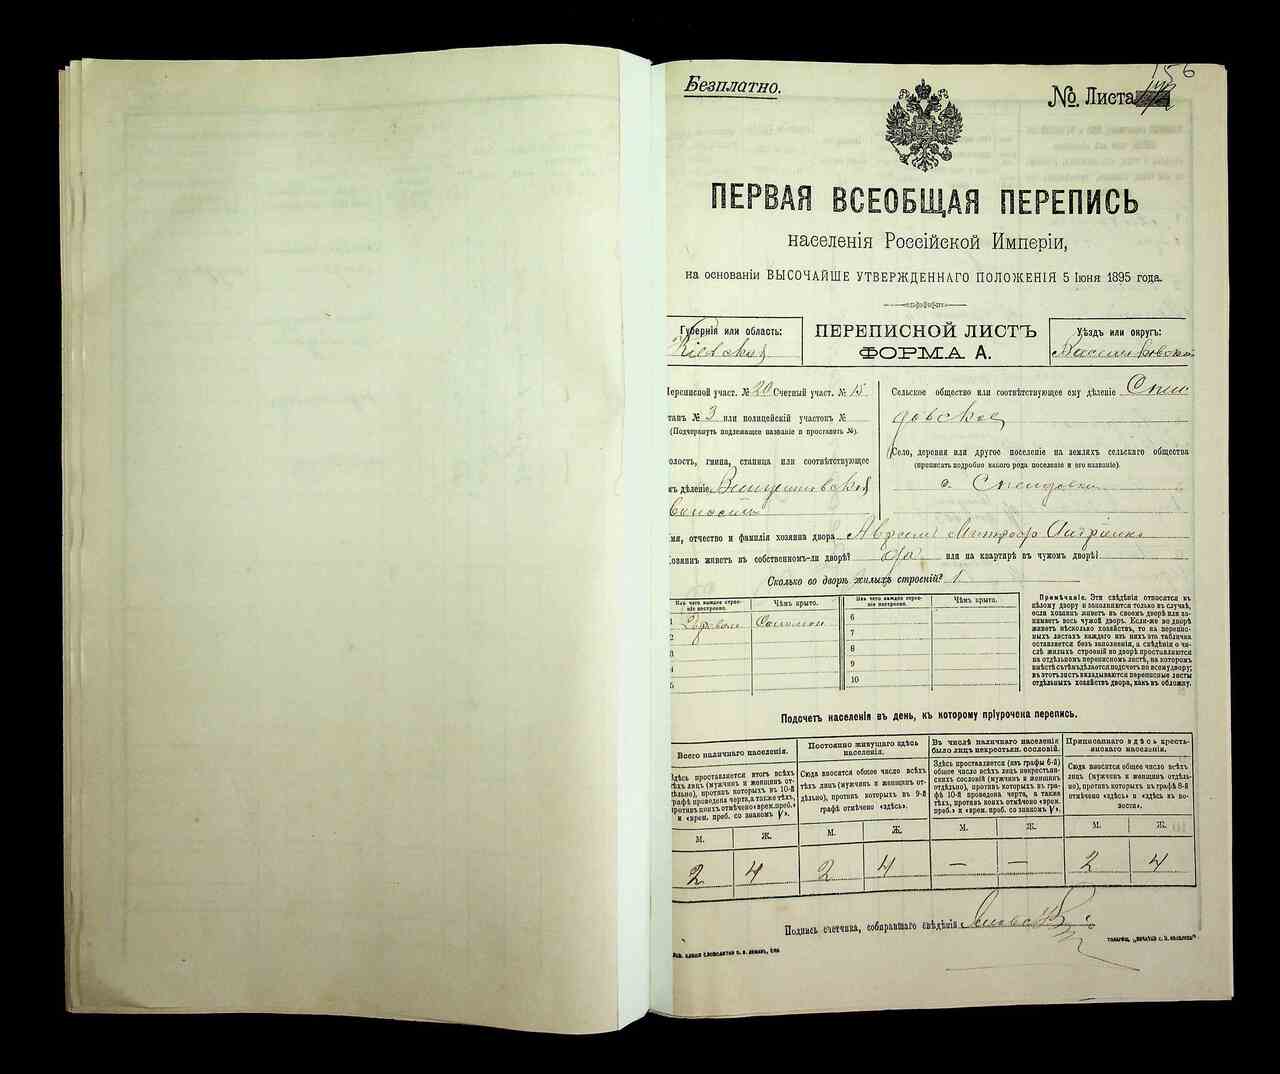 156
Безплатно.
№ Листа
ПЕРВАЯ ВСЕОБЩАЯ ПЕРЕПИСЬ
населенія Россійской Имперіи,
на основаніи ВЫСОЧАЙШЕ УТВЕРЖДЕННАГО ПОЛОЖЕНІЯ 5 Іюня 1895 года.
Губернія или область:
Кіевская
ПЕРЕПИСНОЙ ЛИСТЪ
ФОРМА А.
Уѣздъ или округъ:
Васильковскій
Переписной участ. № 20 Счетный участ. № 15
танъ № 3 или полицейскій участокъ №
(Подчеркнуть подлежащее названіе и проставить №).
олость, гмина, станица или соотвѣтствующее
ъ дѣленіе
волость
Сельское общество или соотвѣтствующее ему дѣленіе
Село, деревня или другое поселеніе на земляхъ сельскаго общества
(прописать подробно какого рода поселеніе и его названіе).
с.
мя, отчество и фамилія хозяина двора
озяинъ живетъ въ собственномъ-ли дворѣ? да или на квартирѣ въ чужомъ дворѣ?
Сколько во дворѣ жилыхъ строеній? 1
Изъ чего каждое строе-
ніе построено.
Чѣмъ крыто.
1 Соломой
2
3
4
5
Изъ чего каждое строе-
ніе построено.
Чѣмъ крыто.
6
7
8
9
10
Примѣчаніе. Эти свѣдѣнія относятся къ
цѣлому двору и заполняются только въ случаѣ,
если хозяинъ живетъ въ своемъ дворѣ или за-
нимаетъ весь чужой дворъ. Если-же во дворѣ
живетъ нѣсколько хозяйствъ, то на перепис-
ныхъ листахъ каждаго изъ нихъ эта табличка
оставляется безъ заполненія, а свѣдѣнія о чи-
слѣ жилыхъ строеній во дворѣ проставляются
на отдѣльномъ переписномъ листѣ, на которомъ
вмѣстѣ съ тѣмъ дѣлается подсчетъ по всему двору;
въ этотъ листъ вкладываются переписные листы
отдѣльныхъ хозяйствъ двора, какъ въ обложку.
Подсчетъ населенія въ день, къ которому пріурочена перепись.
Всего наличнаго населенія.
Здѣсь проставляется итогъ всѣхъ
тѣхъ лицъ (мужчинъ и женщинъ от-
дѣльно), противъ которыхъ въ 10-й
графѣ проведена черта, а также тѣхъ,
противъ коихъ отмѣчено «врем. преб.»
и «врем. преб. со знакомъ V».
Постоянно живущаго здѣсь
населенія.
Сюда вносится общее число всѣхъ
тѣхъ лицъ (мужчинъ и женщинъ от-
дѣльно), противъ которыхъ въ 9-й
графѣ отмѣчено «здѣсь».
Въ числѣ наличнаго населенія
было лицъ некрестьян. сословій.
Здѣсь проставляется (изъ графы 6-й)
общее число всѣхъ лицъ некрестьян-
скихъ сословій (мужчинъ и женщинъ
отдѣльно), противъ которыхъ въ гра-
фѣ 10-й проведена черта, а также
тѣхъ, противъ коихъ отмѣчено «врем.
преб.» и «врем. преб. со знакомъ V».
Приписаннаго здѣсь кресть-
янскаго населенія.
Сюда вносится общее число всѣхъ
лицъ (мужчинъ и женщинъ отдѣль-
но), противъ которыхъ въ графѣ 8-й
отмѣчено «здѣсь» и «здѣсь къ во-
лости».
М. Ж. М. Ж. М. Ж. М. Ж.
2 4 2 4 — — 2 4
Подпись счетчика, собиравшаго свѣдѣнія